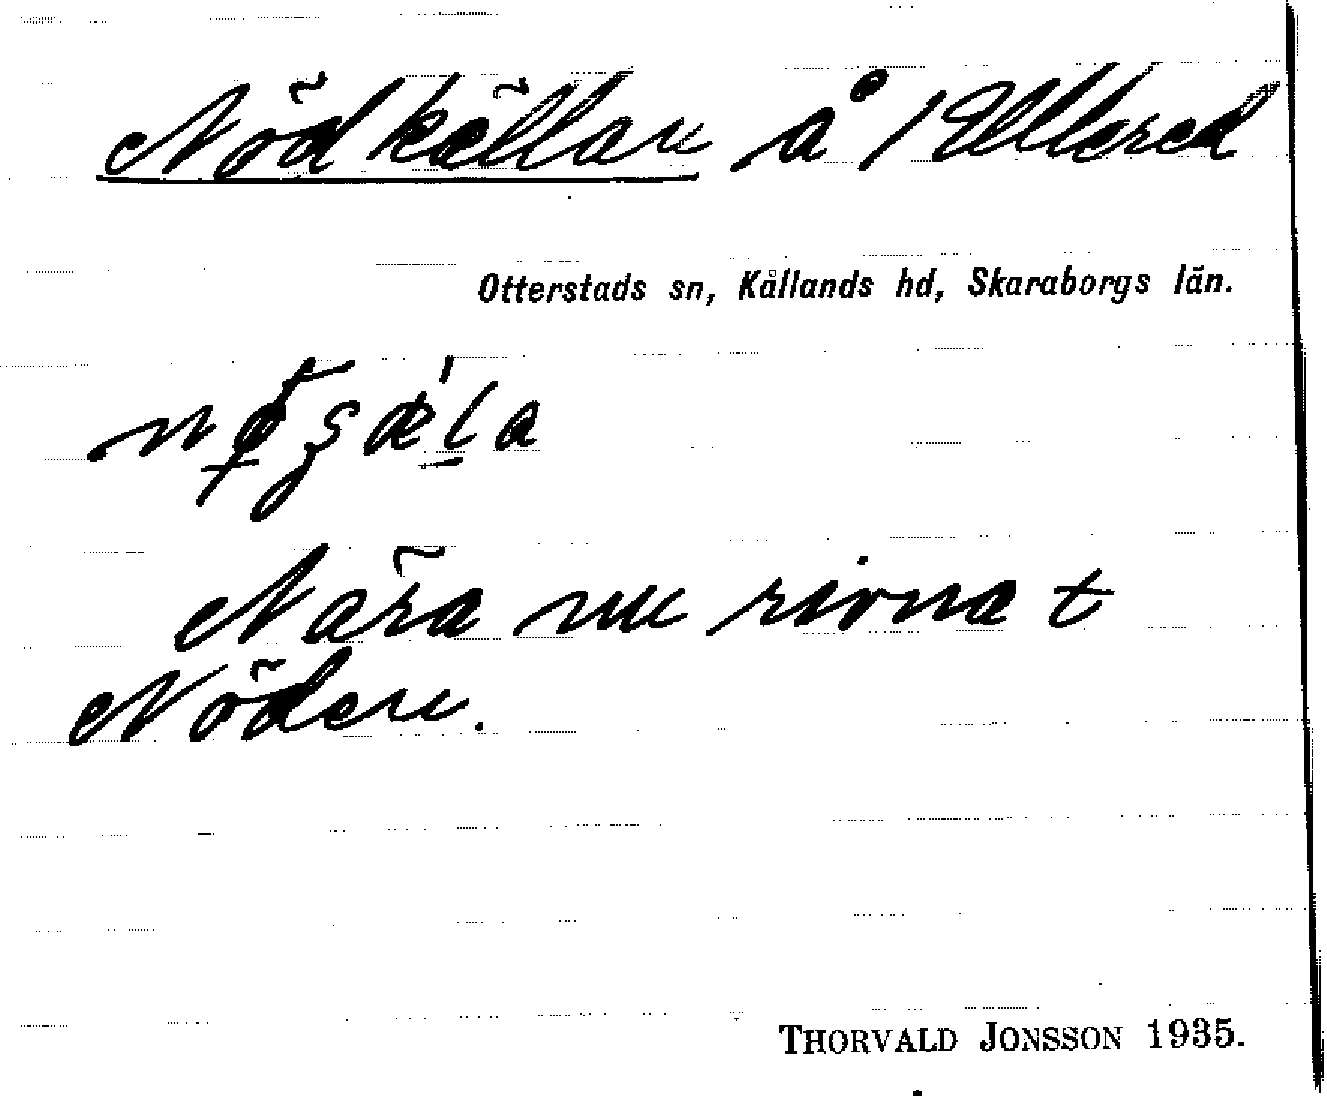 Nödkällan å / Ullersred
Otterstads sn, Kållands hd, Skaraborgs län.
Nära nu rivna t
Nöden.
THORVALD JONSSON 1935.